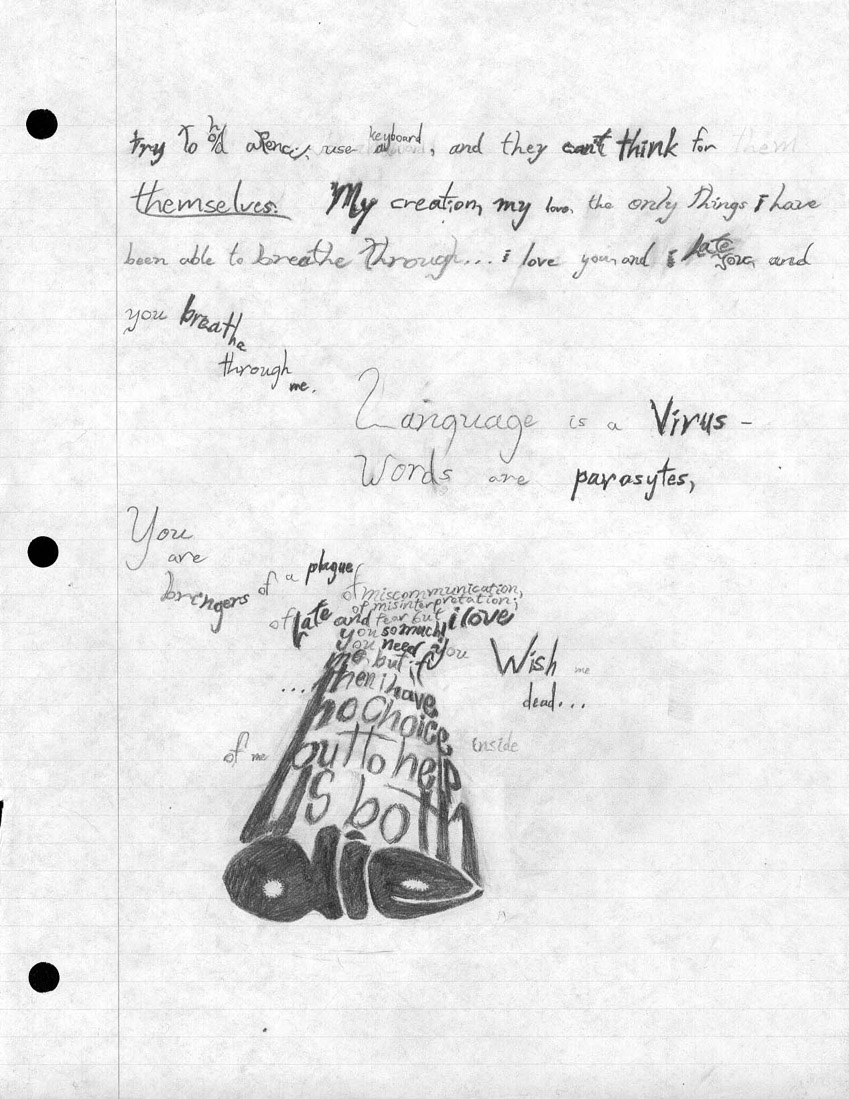 try To hold a Pencil, use a keyboard, and they can't think for them
themselves. My creation, my love, the only Things i have
been able to breathe Through... i love you, and i hate you, and
you breathe
through me.
Language is a Virus -
Words are parasytes,
You
are
brengers of a plague
of miscommunication,
of misinterpretation;
of hate and fear but i love
you so much!
you need you
me, but if
Wish me
dead...
...then i have
no choice
of me
inside
but To help
us both
die